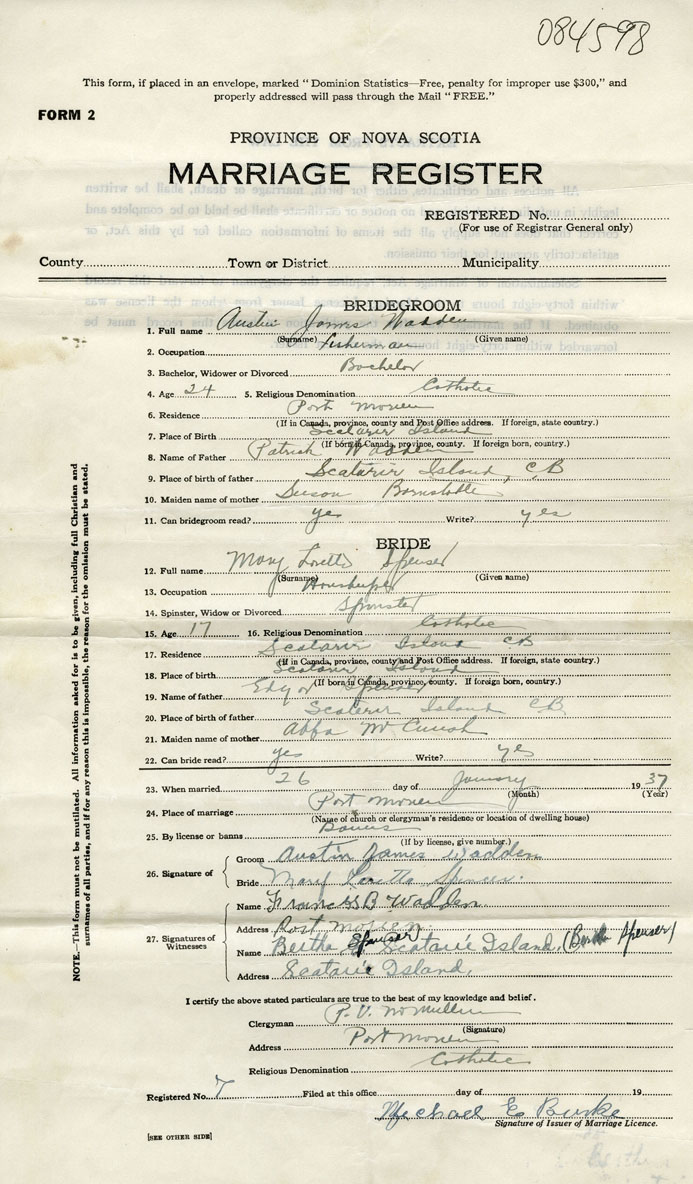 084598
This form, if placed in an envelope, marked "Dominion Statistics—Free, penalty for improper use $300," and
properly addressed will pass through the Mail "FREE."
FORM 2
PROVINCE OF NOVA SCOTIA
MARRIAGE REGISTER
REGISTERED No.
(For use of Registrar General only)
County Town or District Municipality
BRIDEGROOM
1. Full name Austin James Wadden
(Surname) (Given name)
2. Occupation Fisherman
3. Bachelor, Widower or Divorced Bachelor
4. Age 24 5. Religious Denomination Catholic
6. Residence Port Morien
(If in Canada, province, county and Post Office address. If foreign, state country.)
7. Place of Birth Scatarie Island
(If born in Canada, province, county. If foreign born, country.)
8. Name of Father Patrick Wadden
9. Place of birth of father Scatarie Island, CB
10. Maiden name of mother Susan
11. Can bridegroom read? yes Write? yes
BRIDE
12. Full name Mary Loretta Spenser
(Surname) (Given name)
13. Occupation Housekeeper
14. Spinster, Widow or Divorced Spinster
15. Age 17 16. Religious Denomination Catholic
17. Residence Scatarie Island CB
(If in Canada, province, county and Post Office address. If foreign, state country.)
18. Place of birth Scatarie Island
(If born in Canada, province, county. If foreign born, country.)
19. Name of father Spenser
20. Place of birth of father Scatarie Island CB
21. Maiden name of mother
22. Can bride read? yes Write? yes
23. When married 26 day of January 1937
(Month) (Year)
24. Place of marriage Port Morien
(Name of church or clergyman's residence or location of dwelling house)
25. By license or banns Banns
(If by license, give number.)
26. Signature of Groom Austin James Wadden
Bride Mary Loretta Spencer.
27. Signatures of Witnesses Name Francis B Wadden
Address Port Morien
Name Bertha Spenser Scatarie Island, (Bertha Spenser)
Address Scatarie Island,
I certify the above stated particulars are true to the best of my knowledge and belief.
Clergyman P. V. McMullin
(Signature)
Address Port Morien
Religious Denomination Catholic
Registered No. 7 Filed at this office day of 19
Michael E Burke
Signature of Issuer of Marriage Licence.
[SEE OTHER SIDE]
NOTE.—This form must not be mutilated. All information asked for is to be given, including full Christian and
surnames of all parties, and if for any reason this is impossible, the reason for the omission must be stated.